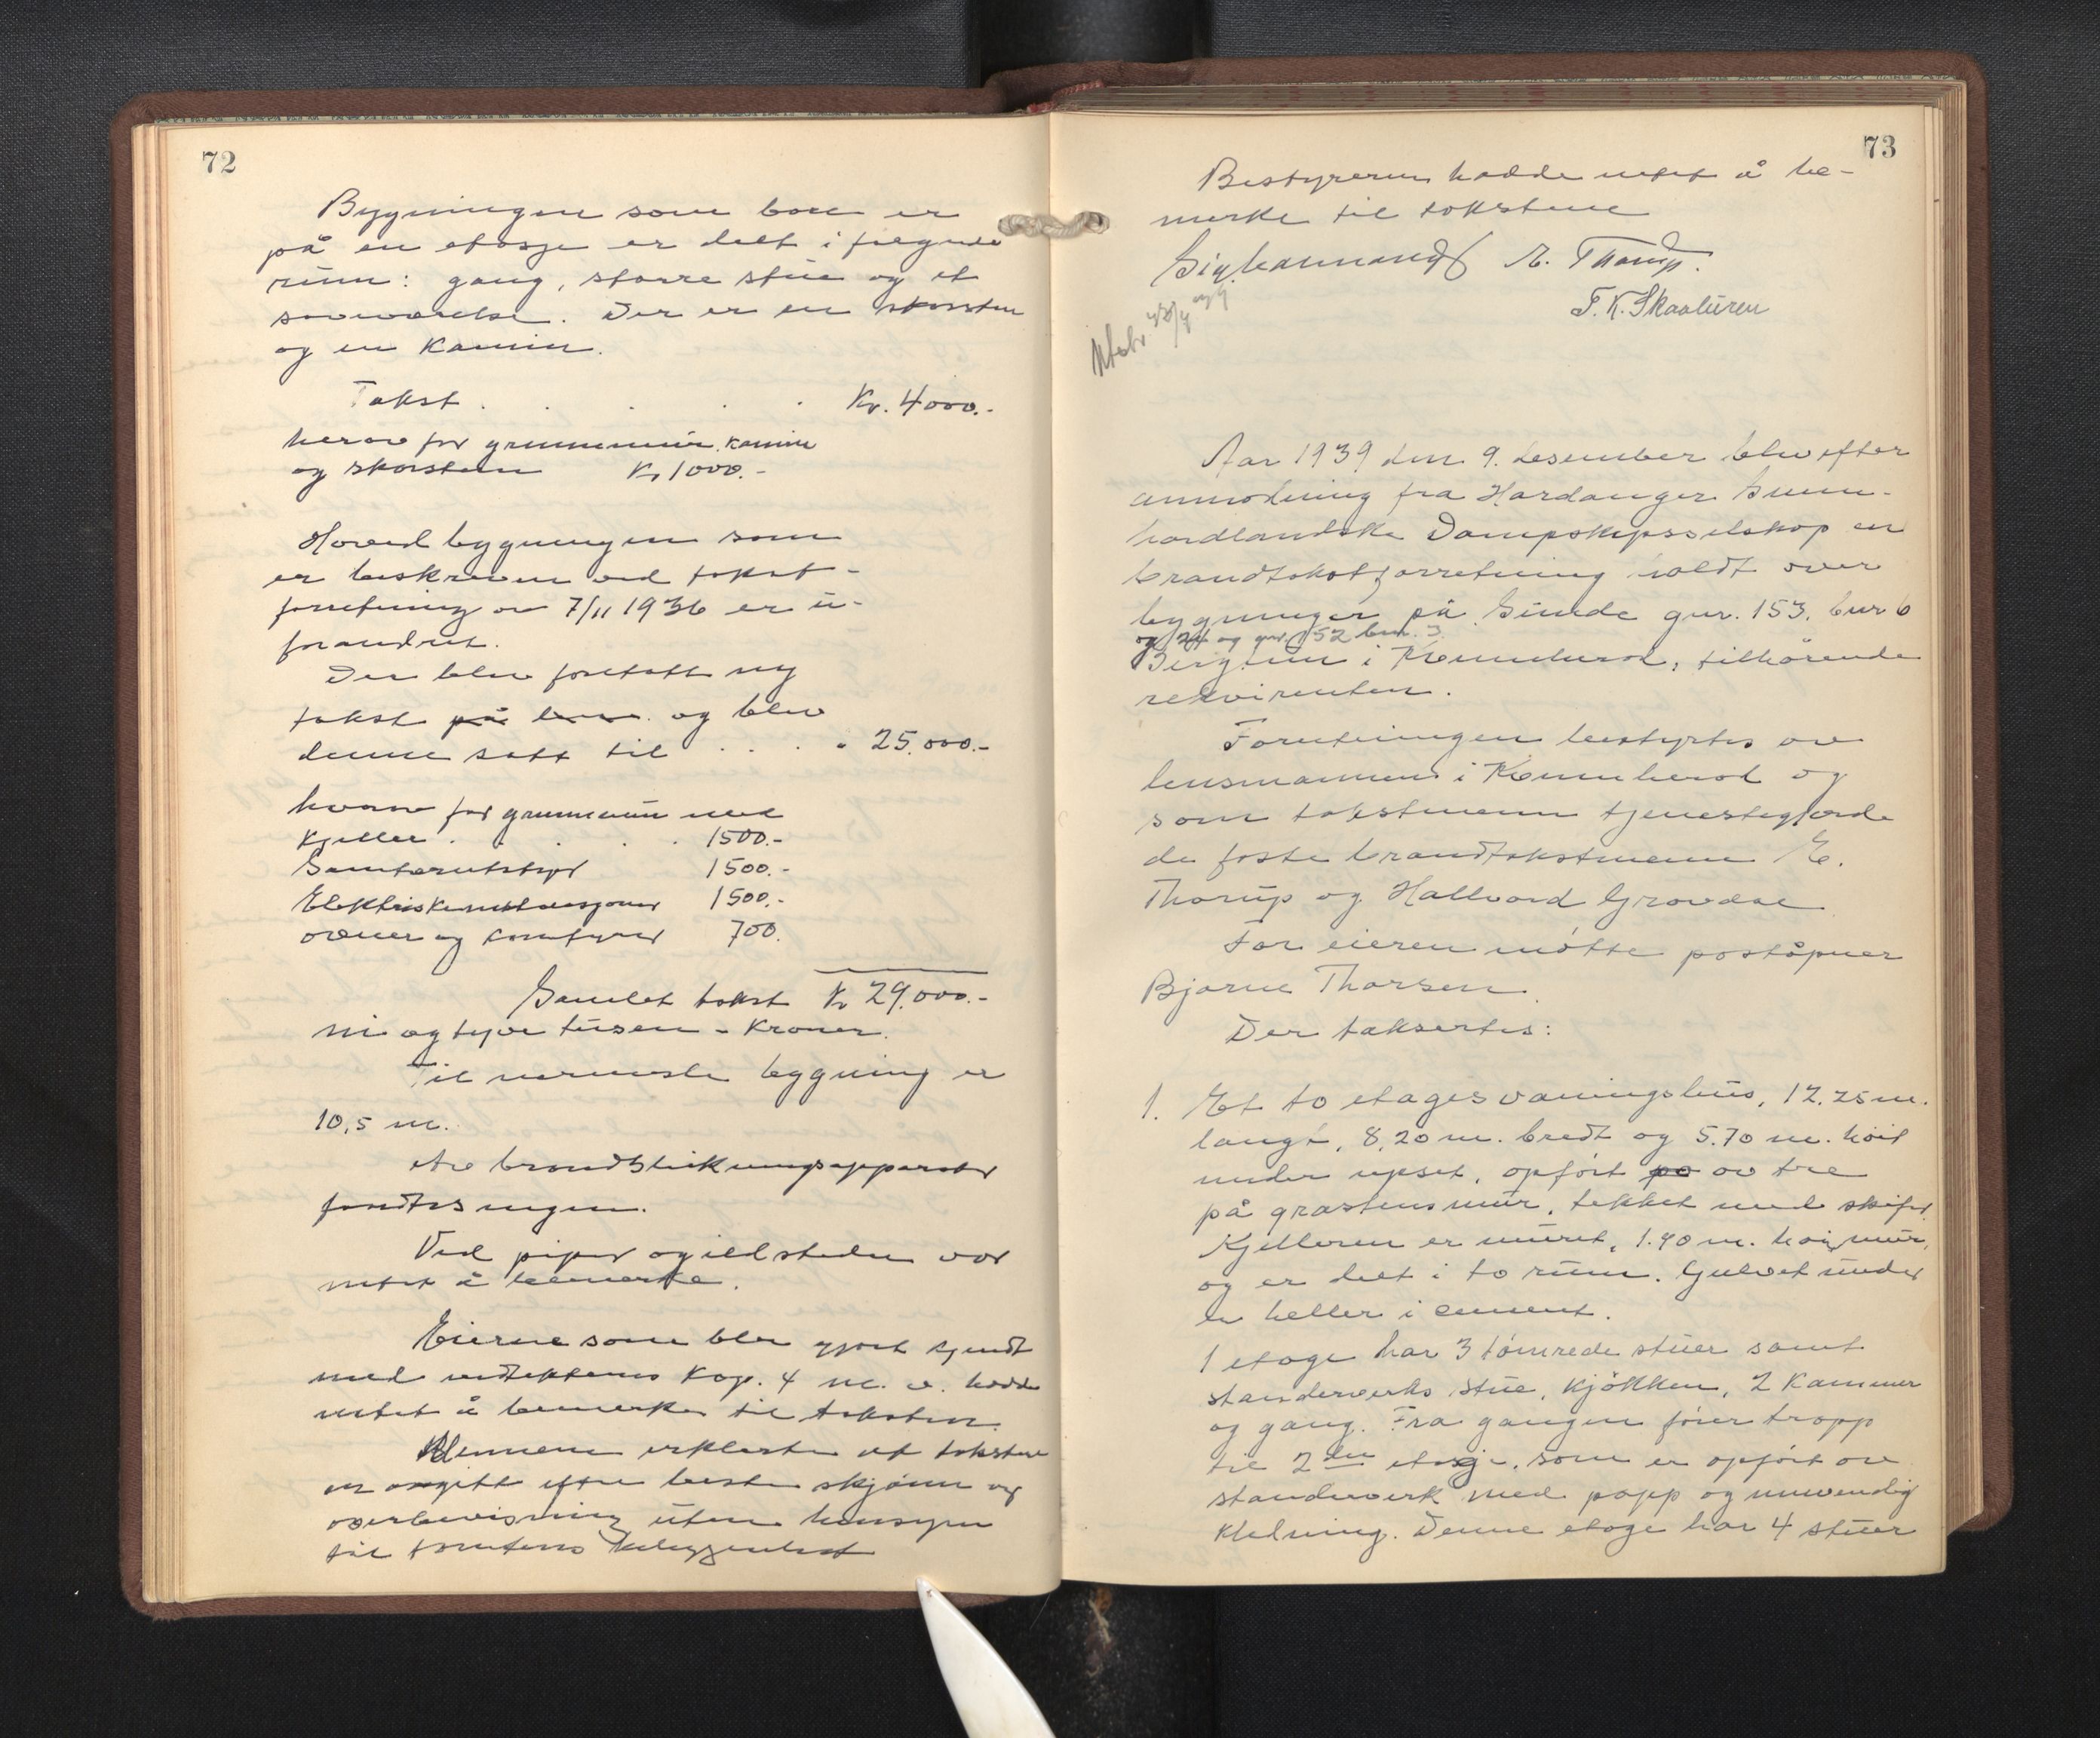 72
Bygningen som bare er
på en etasje er delt i følgende
rum: gang, større stue og et
soveværelse. Der er en skorsten
og en Kamin.
Takst . . . . . Kr. 4000.-
herav for grunnmur, kamin
og skorsten Kr 1000.-
Hovedbygningen som
er beskreven ved takst-
forretning av 7/11 1936 er u-
forandret.
Der blev foretatt ny
takst på og blev
denne satt til . . . . " 25.000.-
herav for grunnmur med
Kjeller . . . . 1500.-
Sanitærutstyr 1500.-
Elektriskeinstalasjoner 1500.-
ovner og komfyrer 700.
Samlet takst Kr 29.000.-
ni og tyve tusen - Kroner.
Til nærmeste bygning er
10,5 m.
Av brandslukningsapparater
fandtes ingen.
Ved piper og ildsteder var
intet å bemerke.
Eierne som blev gjort kjendt
med vedtektenes Kap. 4 m. v. hadde
intet å bemerke til taksten.
Mennene erklærte at takstene
er avgitt efter beste skjønn og
overbevisning uten hensyn
til tomtens beliggenhet
73
Bestyreren hadde intet å be-
merke til takstene
E. Thorup.
T. K. Skaaluren
Aar 1939 den 9. desember blev efter
anmodning fra Hardanger Sunn-
hordlandske Dampskipsselskap en
brandtakstforretning holdt over
bygninger på Sunde gnr. 153. bnr 6
og 24 og gnr. 152 bnr. 3.
i Kvinnherad, tilhørende
rekvirenten.
Forretningen bestyrtes av
lensmannen i Kvinnherad og
som takstmenn tjenestegjorde
de faste brandtakstmenn E.
Thorup og Hallvard Grovdal
For eieren møtte poståpner
Bjarne Thorsen.
Der taksertes:
1. Et to etages vaningshus, 12.25 m.
langt, 8,20 m. bredt og 5.70 m. høit
under upset, opført po av tre
på gråstensmur, tekket med skifer.
Kjelleren er muret, 1.90 m. høi mur,
og er delt i to rum. Gulvet under
er heller i cement.
1 etage har 3 tømrede stuer samt
standerverks stue, Kjøkken, 2 Kammer
og gang. Fra gangen fører trapp
til 2den etage, som er opført av
standerverk med papp og innvendig
Kledning. Denne etage har 4 stuer